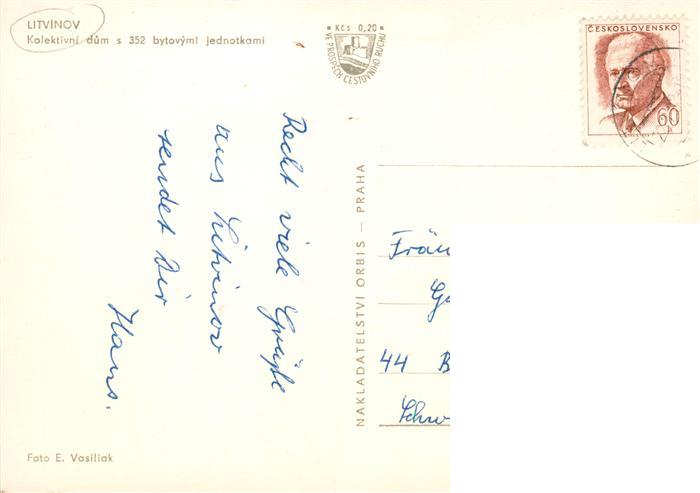 LITVÍNOV
Kolektivní dům s 352 bytovými jednotkami
Kčs 0,20
VE PROSPĚCH CESTOVNÍHO RUCHU
ČESKOSLOVENSKO
60
h
Recht viele Grüße
aus Litvinov
sendet Dir
Hans.
NAKLADATELSTVÍ ORBIS – PRAHA
Frän
44 B
Schw
Foto E. Vasiliak